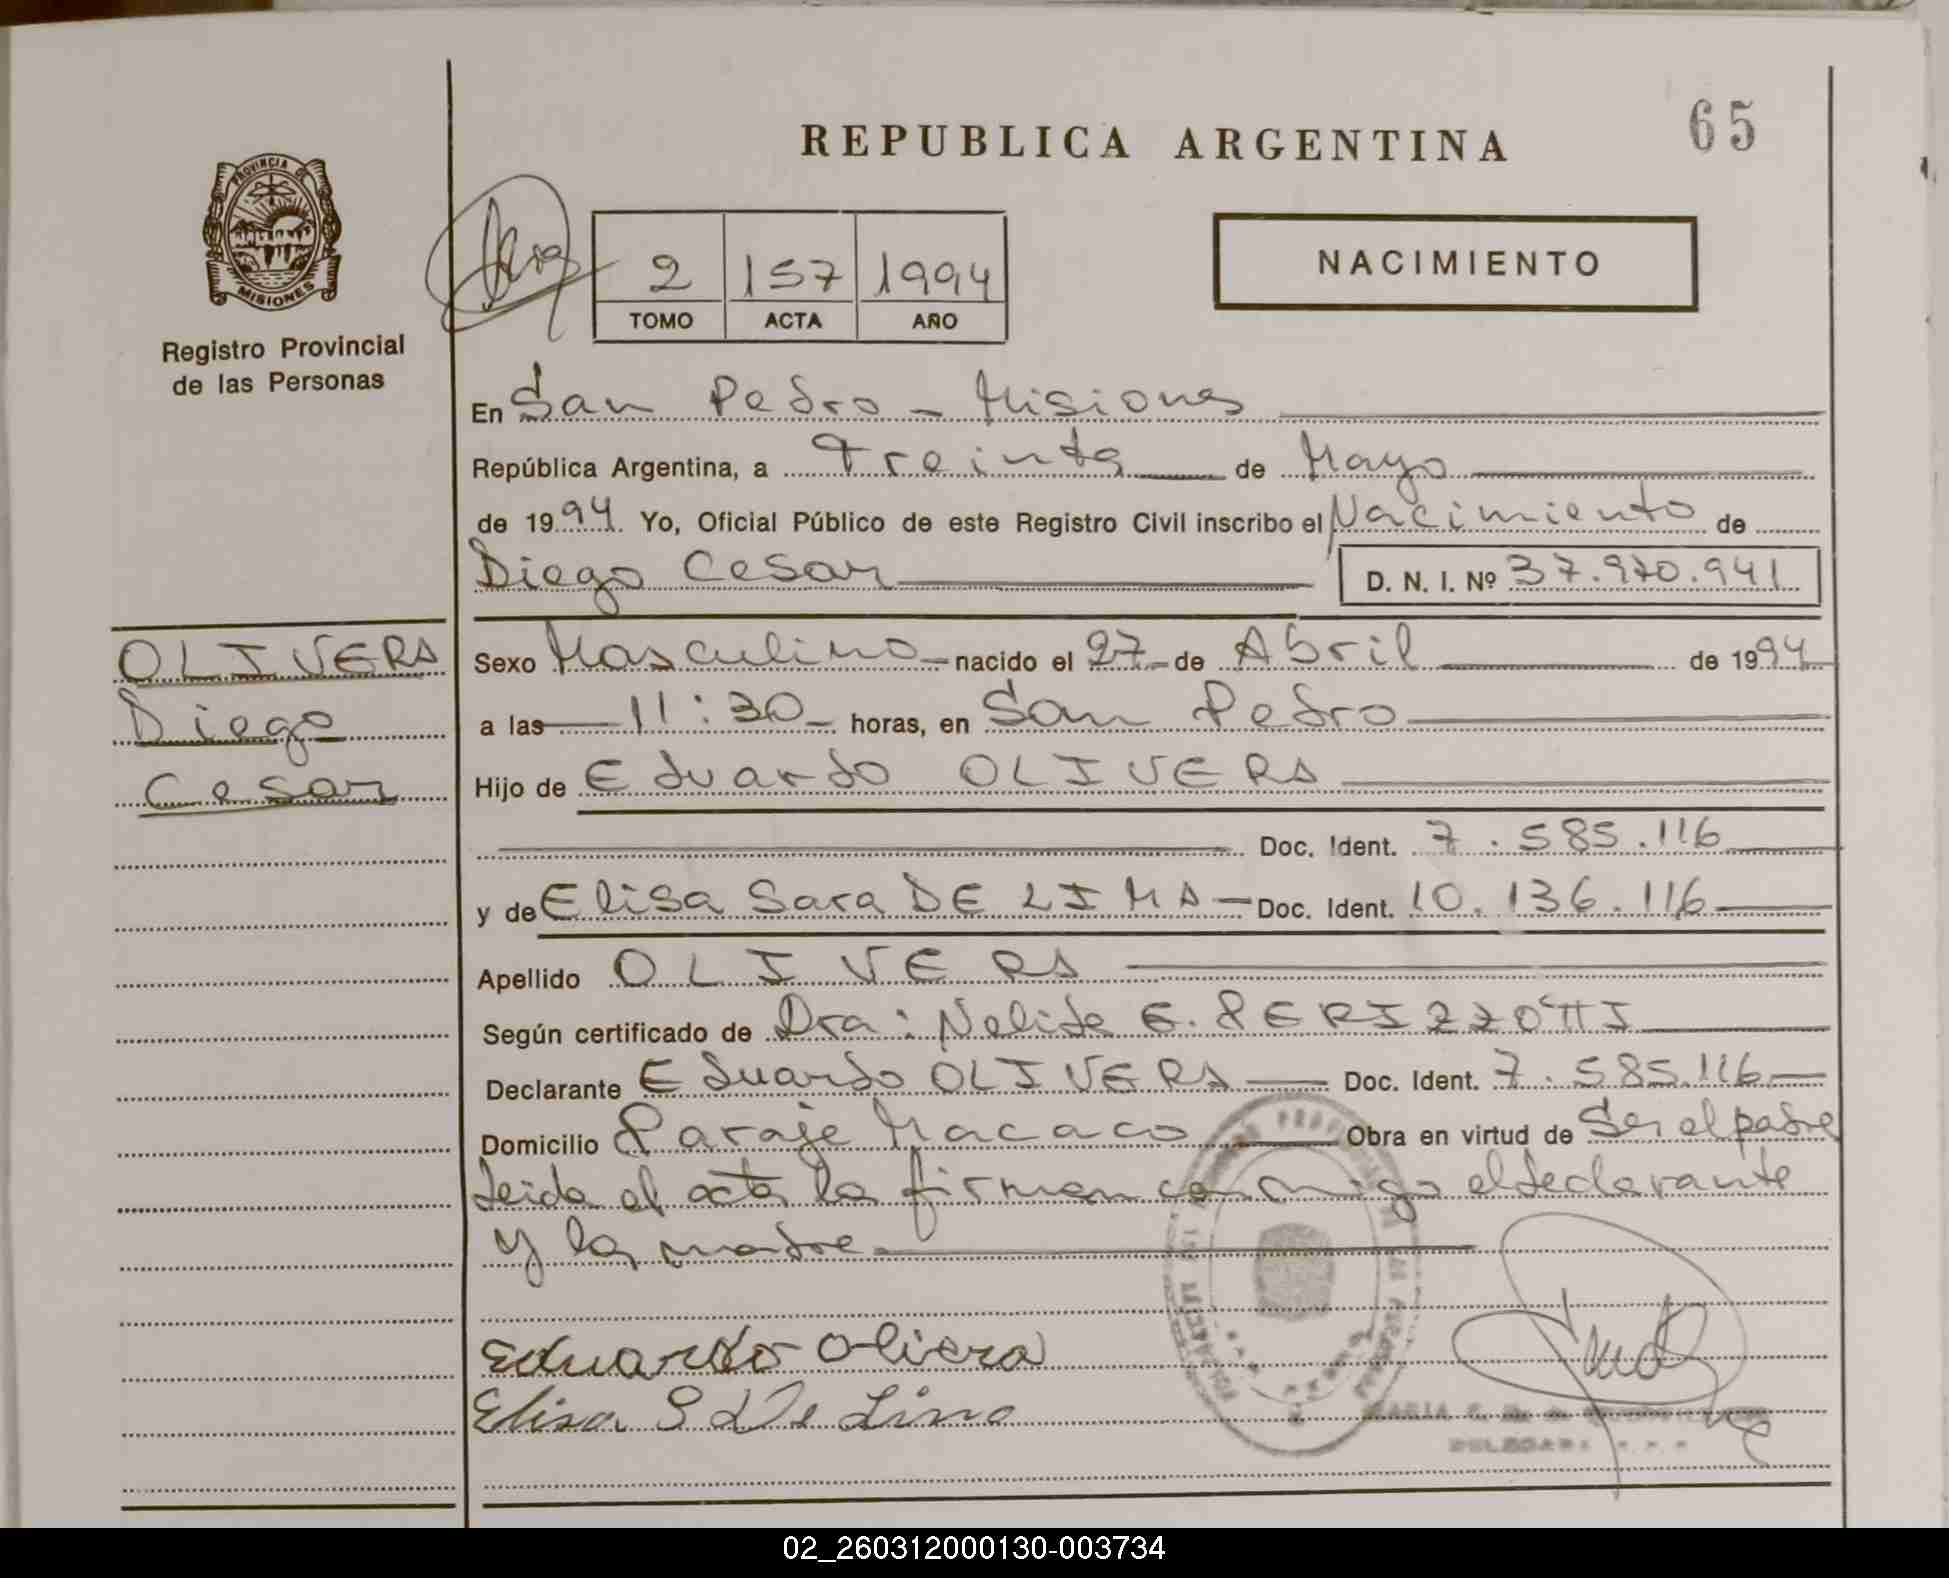 65
REPUBLICA ARGENTINA
PROVINCIA DE
MISIONES
Registro Provincial
de las Personas
2 157 1994
TOMO ACTA AÑO
NACIMIENTO
En San Pedro - Misiones
República Argentina, a Treinta de Mayo
de 1994. Yo, Oficial Público de este Registro Civil inscribo el Nacimiento de
Diego Cesar D. N. I. Nº 37.970.941
OLIVERA
Diego
Cesar
Sexo Masculino nacido el 27 de Abril de 1994
a las 11:30 horas, en San Pedro
Hijo de Eduardo OLIVERA
Doc. Ident. 7.585.116
y de Elisa Sara DE LIMA Doc. Ident. 10.136.116
Apellido OLIVERA
Según certificado de Dra: Nelida E. PERIZZOTTI
Declarante Eduardo OLIVERA Doc. Ident. 7.585.116
Domicilio Paraje Macaco Obra en virtud de Ser el padre
Leida el acta la firman conmigo el declarante
y la madre
Eduardo Olivera
Elisa S De Lima
MARIA
DELEGADA
02_260312000130-003734